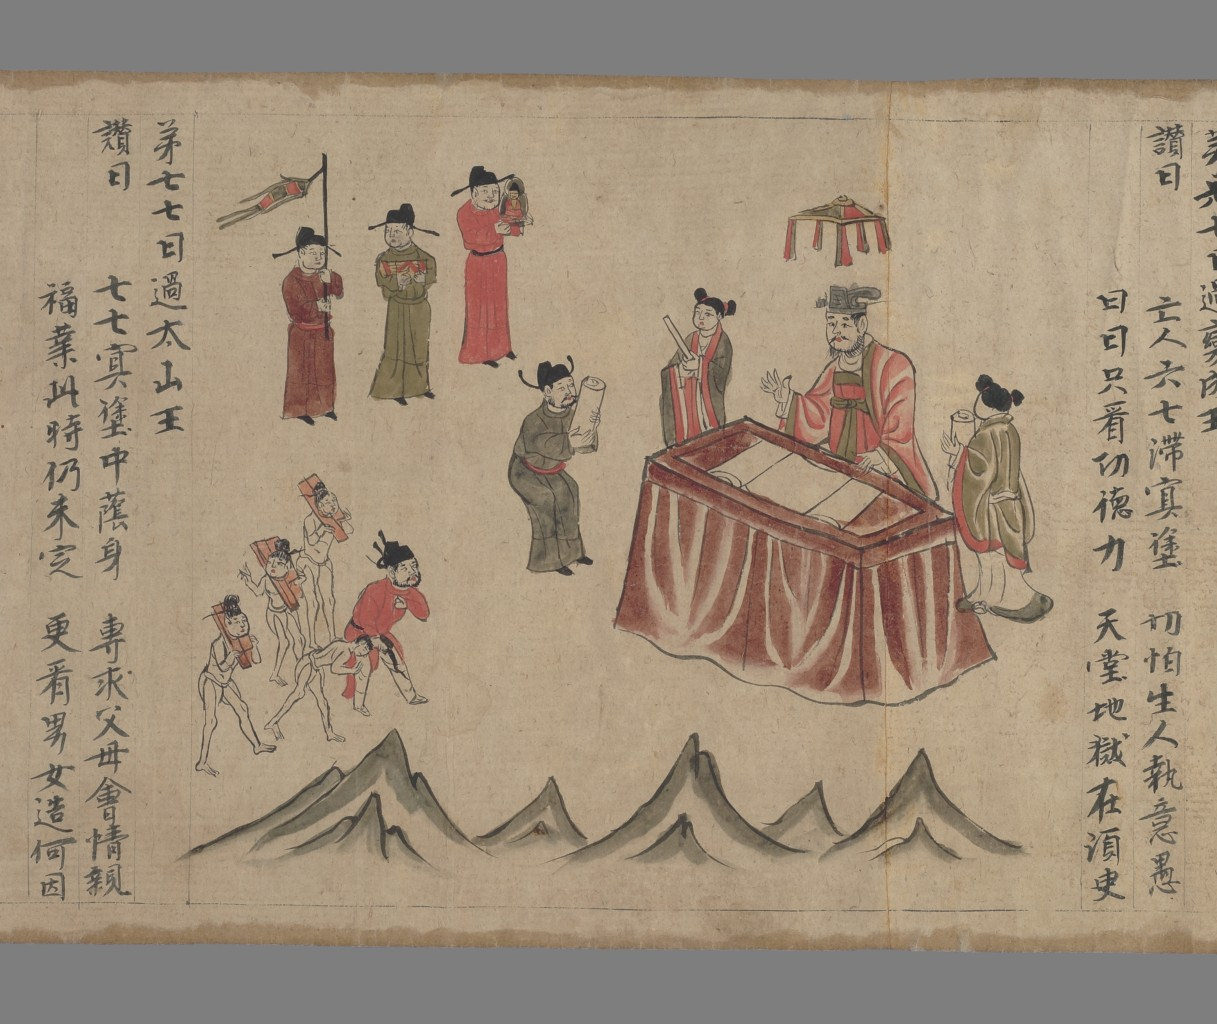 第六七日過變成王
讚曰 亡人六七滯冥塗 切怕生人執意愚
日日只看功德力 天堂地獄在須臾
第七七日過太山王
讚曰 七七冥塗中蔭身 專求父母會情親
福業此時仍未定 更看男女造何因